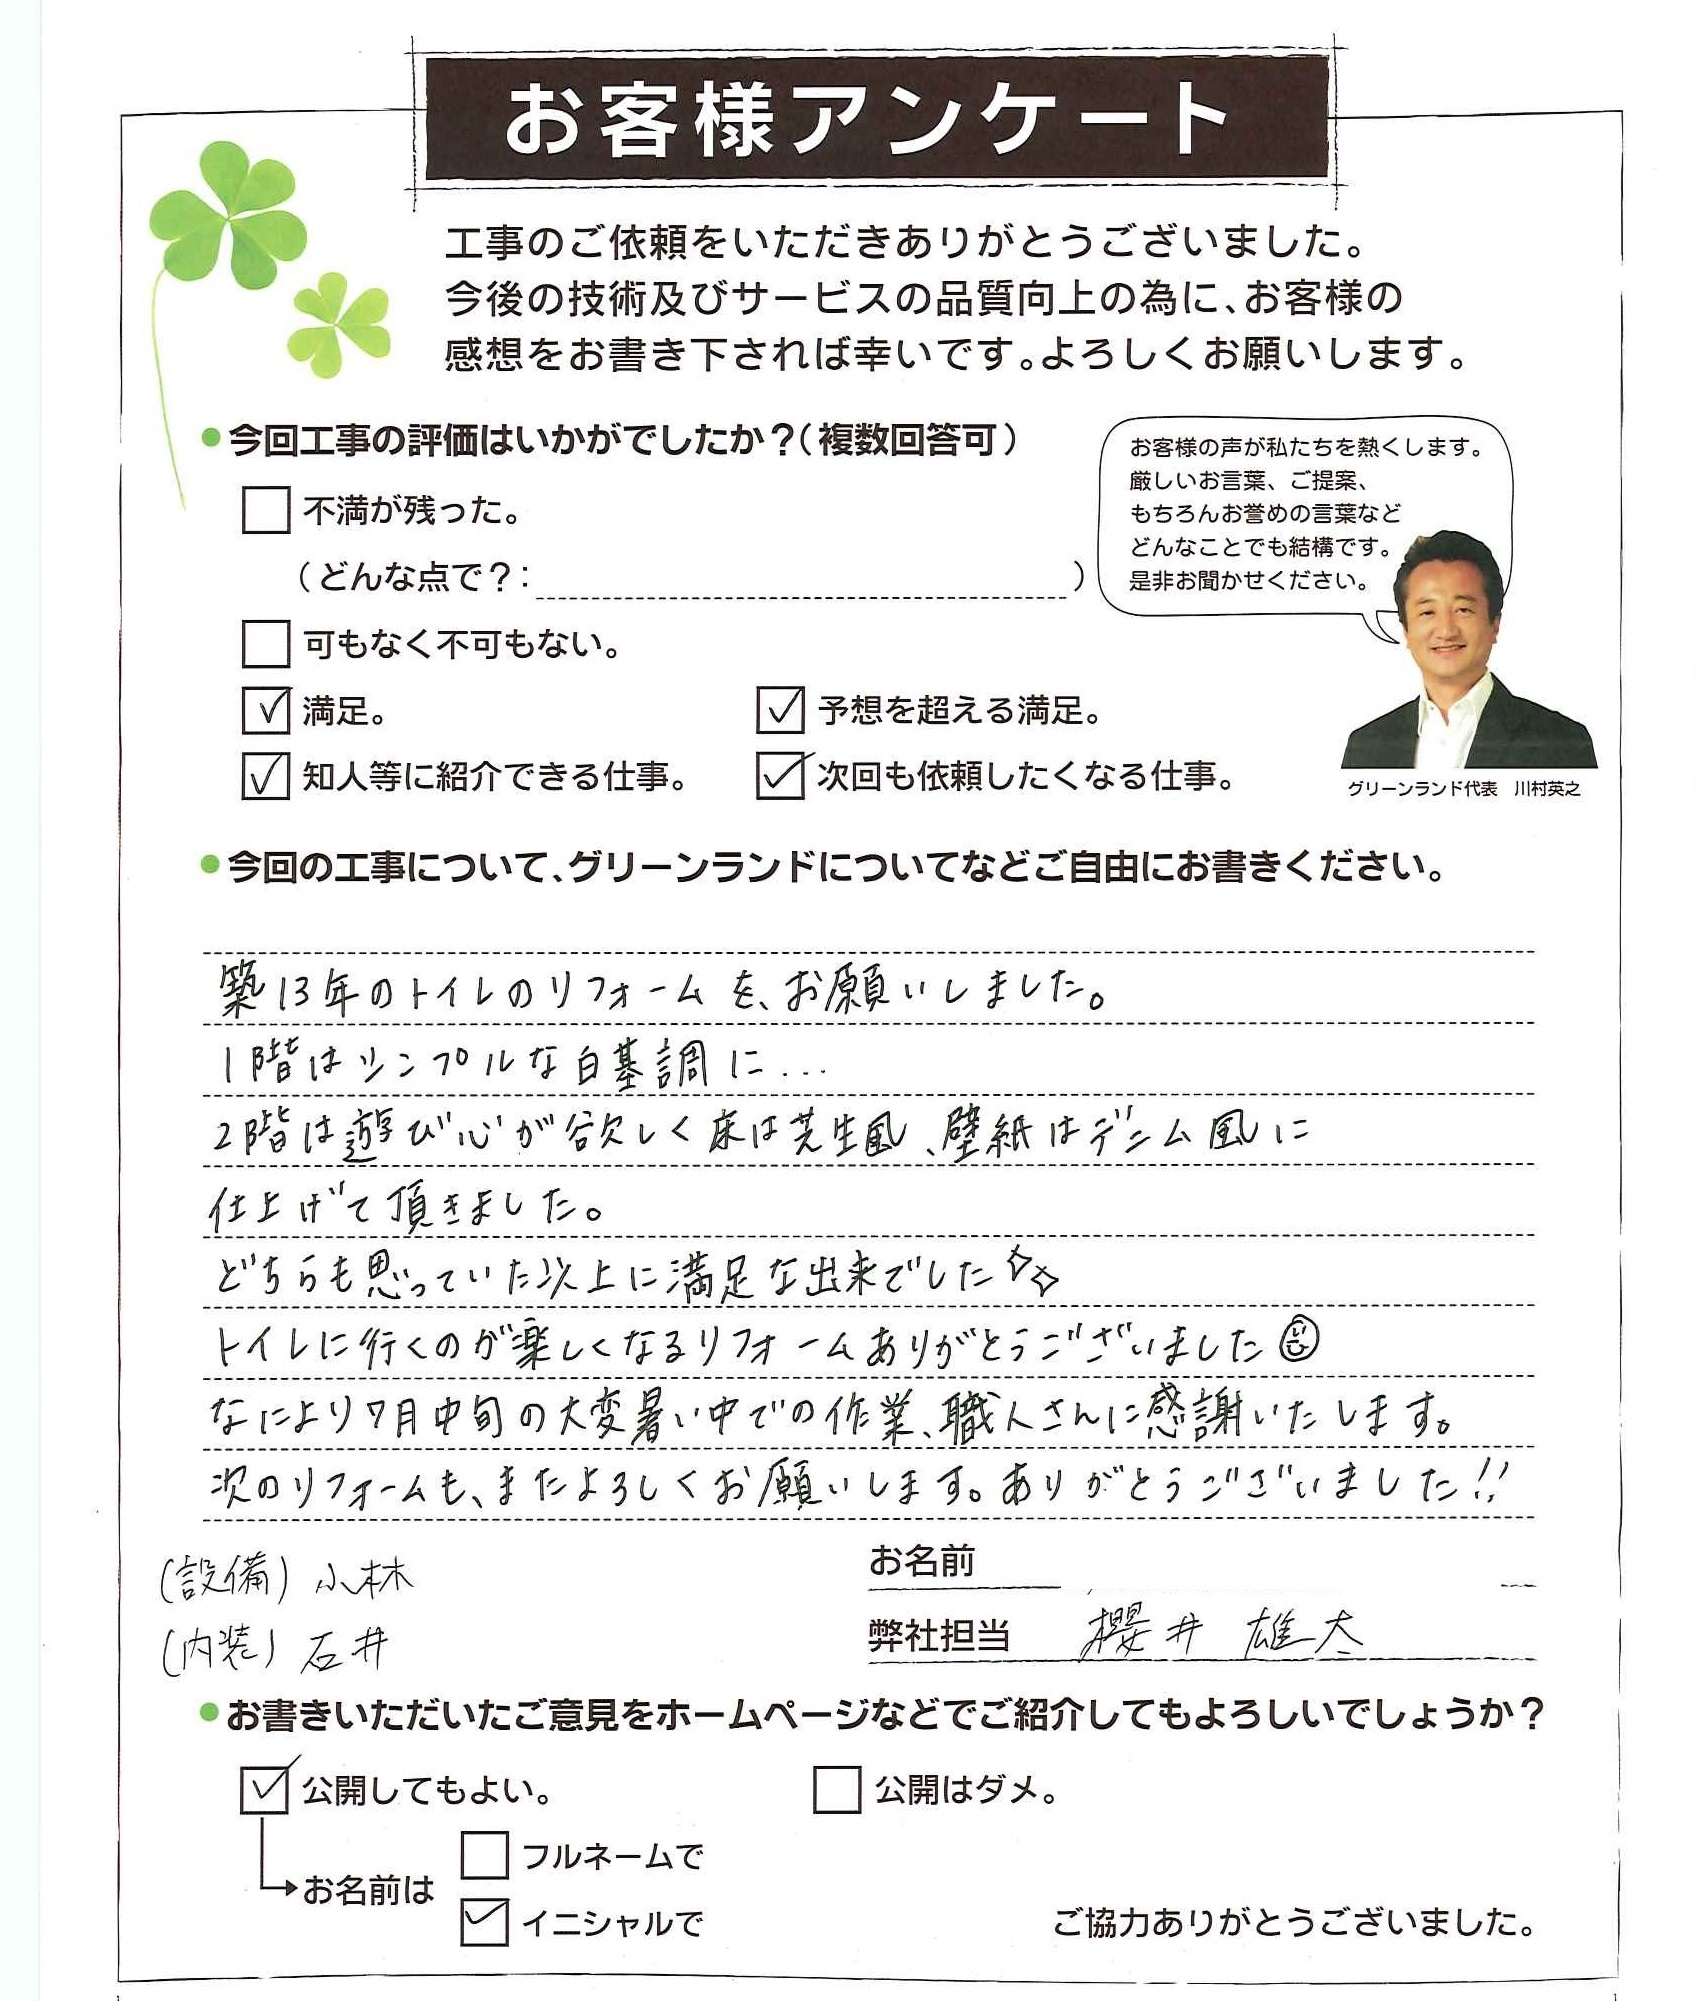 お客様アンケート
工事のご依頼をいただきありがとうございました。
今後の技術及びサービスの品質向上の為に、お客様の
感想をお書き下されば幸いです。よろしくお願いします。
●今回工事の評価はいかがでしたか？（複数回答可）
不満が残った。
（どんな点で？：　）
可もなく不可もない。
満足。
予想を超える満足。
知人等に紹介できる仕事。
次回も依頼したくなる仕事。
お客様の声が私たちを熱くします。
厳しいお言葉、ご提案、
もちろんお誉めの言葉など
どんなことでも結構です。
是非お聞かせください。
グリーンランド代表　川村英之
●今回の工事について、グリーンランドについてなどご自由にお書きください。
築13年のトイレのリフォームを、お願いしました。
1階はシンプルな白基調に…
2階は遊び心が欲しく床は芝生風、壁紙はデニム風に
仕上げて頂きました。
どちらも思っていた以上に満足な出来でした
トイレに行くのが楽しくなるリフォームありがとうございました
なにより7月中旬の大変暑い中での作業、職人さんに感謝いたします。
次のリフォームも、またよろしくお願いします。ありがとうございました!!
(設備) 小林
(内装) 石井
お名前
弊社担当　櫻井 雄太
●お書きいただいたご意見をホームページなどでご紹介してもよろしいでしょうか？
公開してもよい。
公開はダメ。
お名前は
フルネームで
イニシャルで
ご協力ありがとうございました。